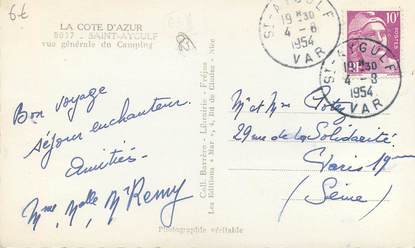 6€
LA COTE D'AZUR
8027 - SAINT-AYGULF
vue générale du Camping
Bon voyage
séjour enchanteur.
Amitiés.
Mme, Melle, Mr Remy
Photographie véritable
Coll. Barrère - Librairie - Fréjus
Les Editions "Mar", 4, Rue du Cirque - Nice
ST-AYGULF
19 H30
4 - 8
1954
VAR
ST-AYGULF
19 H30
4 - 8
1954
VAR
10F
POSTES
Mr et Mme
29 rue de la Solidarité
Paris 19eme
(Seine)